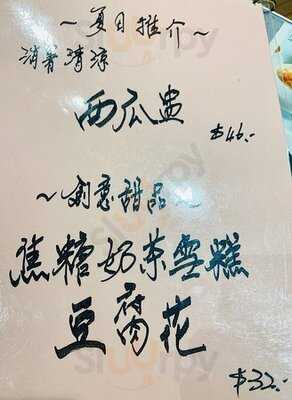 ~夏日推介~
消暑清涼
西瓜盅
$46.-
~創意甜品~
焦糖奶茶雪糕
豆腐花
$32.-